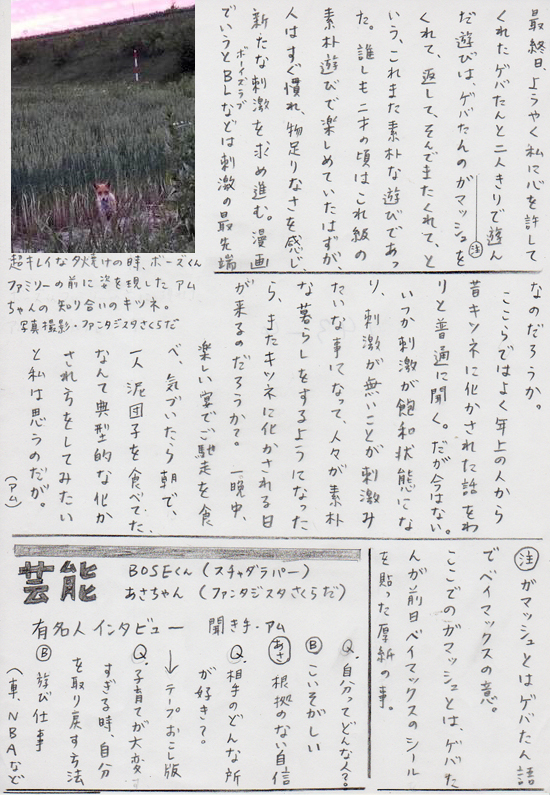 最終日、ようやく私に心を許して
くれたゲバたんと二人きりで遊ん
だ遊びは、ゲバたんのガマッシュを
注
くれて、返して、そんでまたくれて、と
いう、これまた素朴な遊びであっ
た。誰しも二才の頃はこれ級の
素朴遊びで楽しめていたはずが、
人はすぐ慣れ、物足りなさを感じ、
新たな刺激を求め進む。漫画
ボーイズラブ
でいうとBLなどは刺激の最先端
超キレイな夕焼けの時、ボーズくん
ファミリーの前に姿を現したアム
ちゃんの知り合いのキツネ。
写真撮影・ファンタジスタさくらだ
なのだろうか。
ここらではよく年上の人から
昔キツネに化かされた話をわ
りと普通に聞く。だが今はない。
いつか刺激が飽和状態にな
り、刺激が無いことが刺激み
たいな事になって、人々が素朴
な暮らしをするようになった
ら、またキツネに化かされる日
が来るのだろうか?一晩中、
楽しい宴でご馳走を食
べ、気づいたら朝で、
一人泥団子を食べてた、
なんて典型的な化か
され方をしてみたい
と私は思うのだが。
(アム)
注 ガマッシュとはゲバたん語
でベイマックスの意。
ここでのガマッシュとは、ゲバた
んが前日ベイマックスのシール
を貼った厚紙の事。
芸能
BOSEくん(スチャダラパー)
あさちゃん(ファンタジスタさくらだ)
有名人インタビュー 聞き手・アム
Q.自分ってどんな人?
B こいそがしい
あさ 根拠のない自信
Q.相手のどんな所
が好き?
↓テープおこし版
Q.子育てが大変
すぎる時、自分
を取り戻す方法
B 遊び仕事
(車、NBAなど